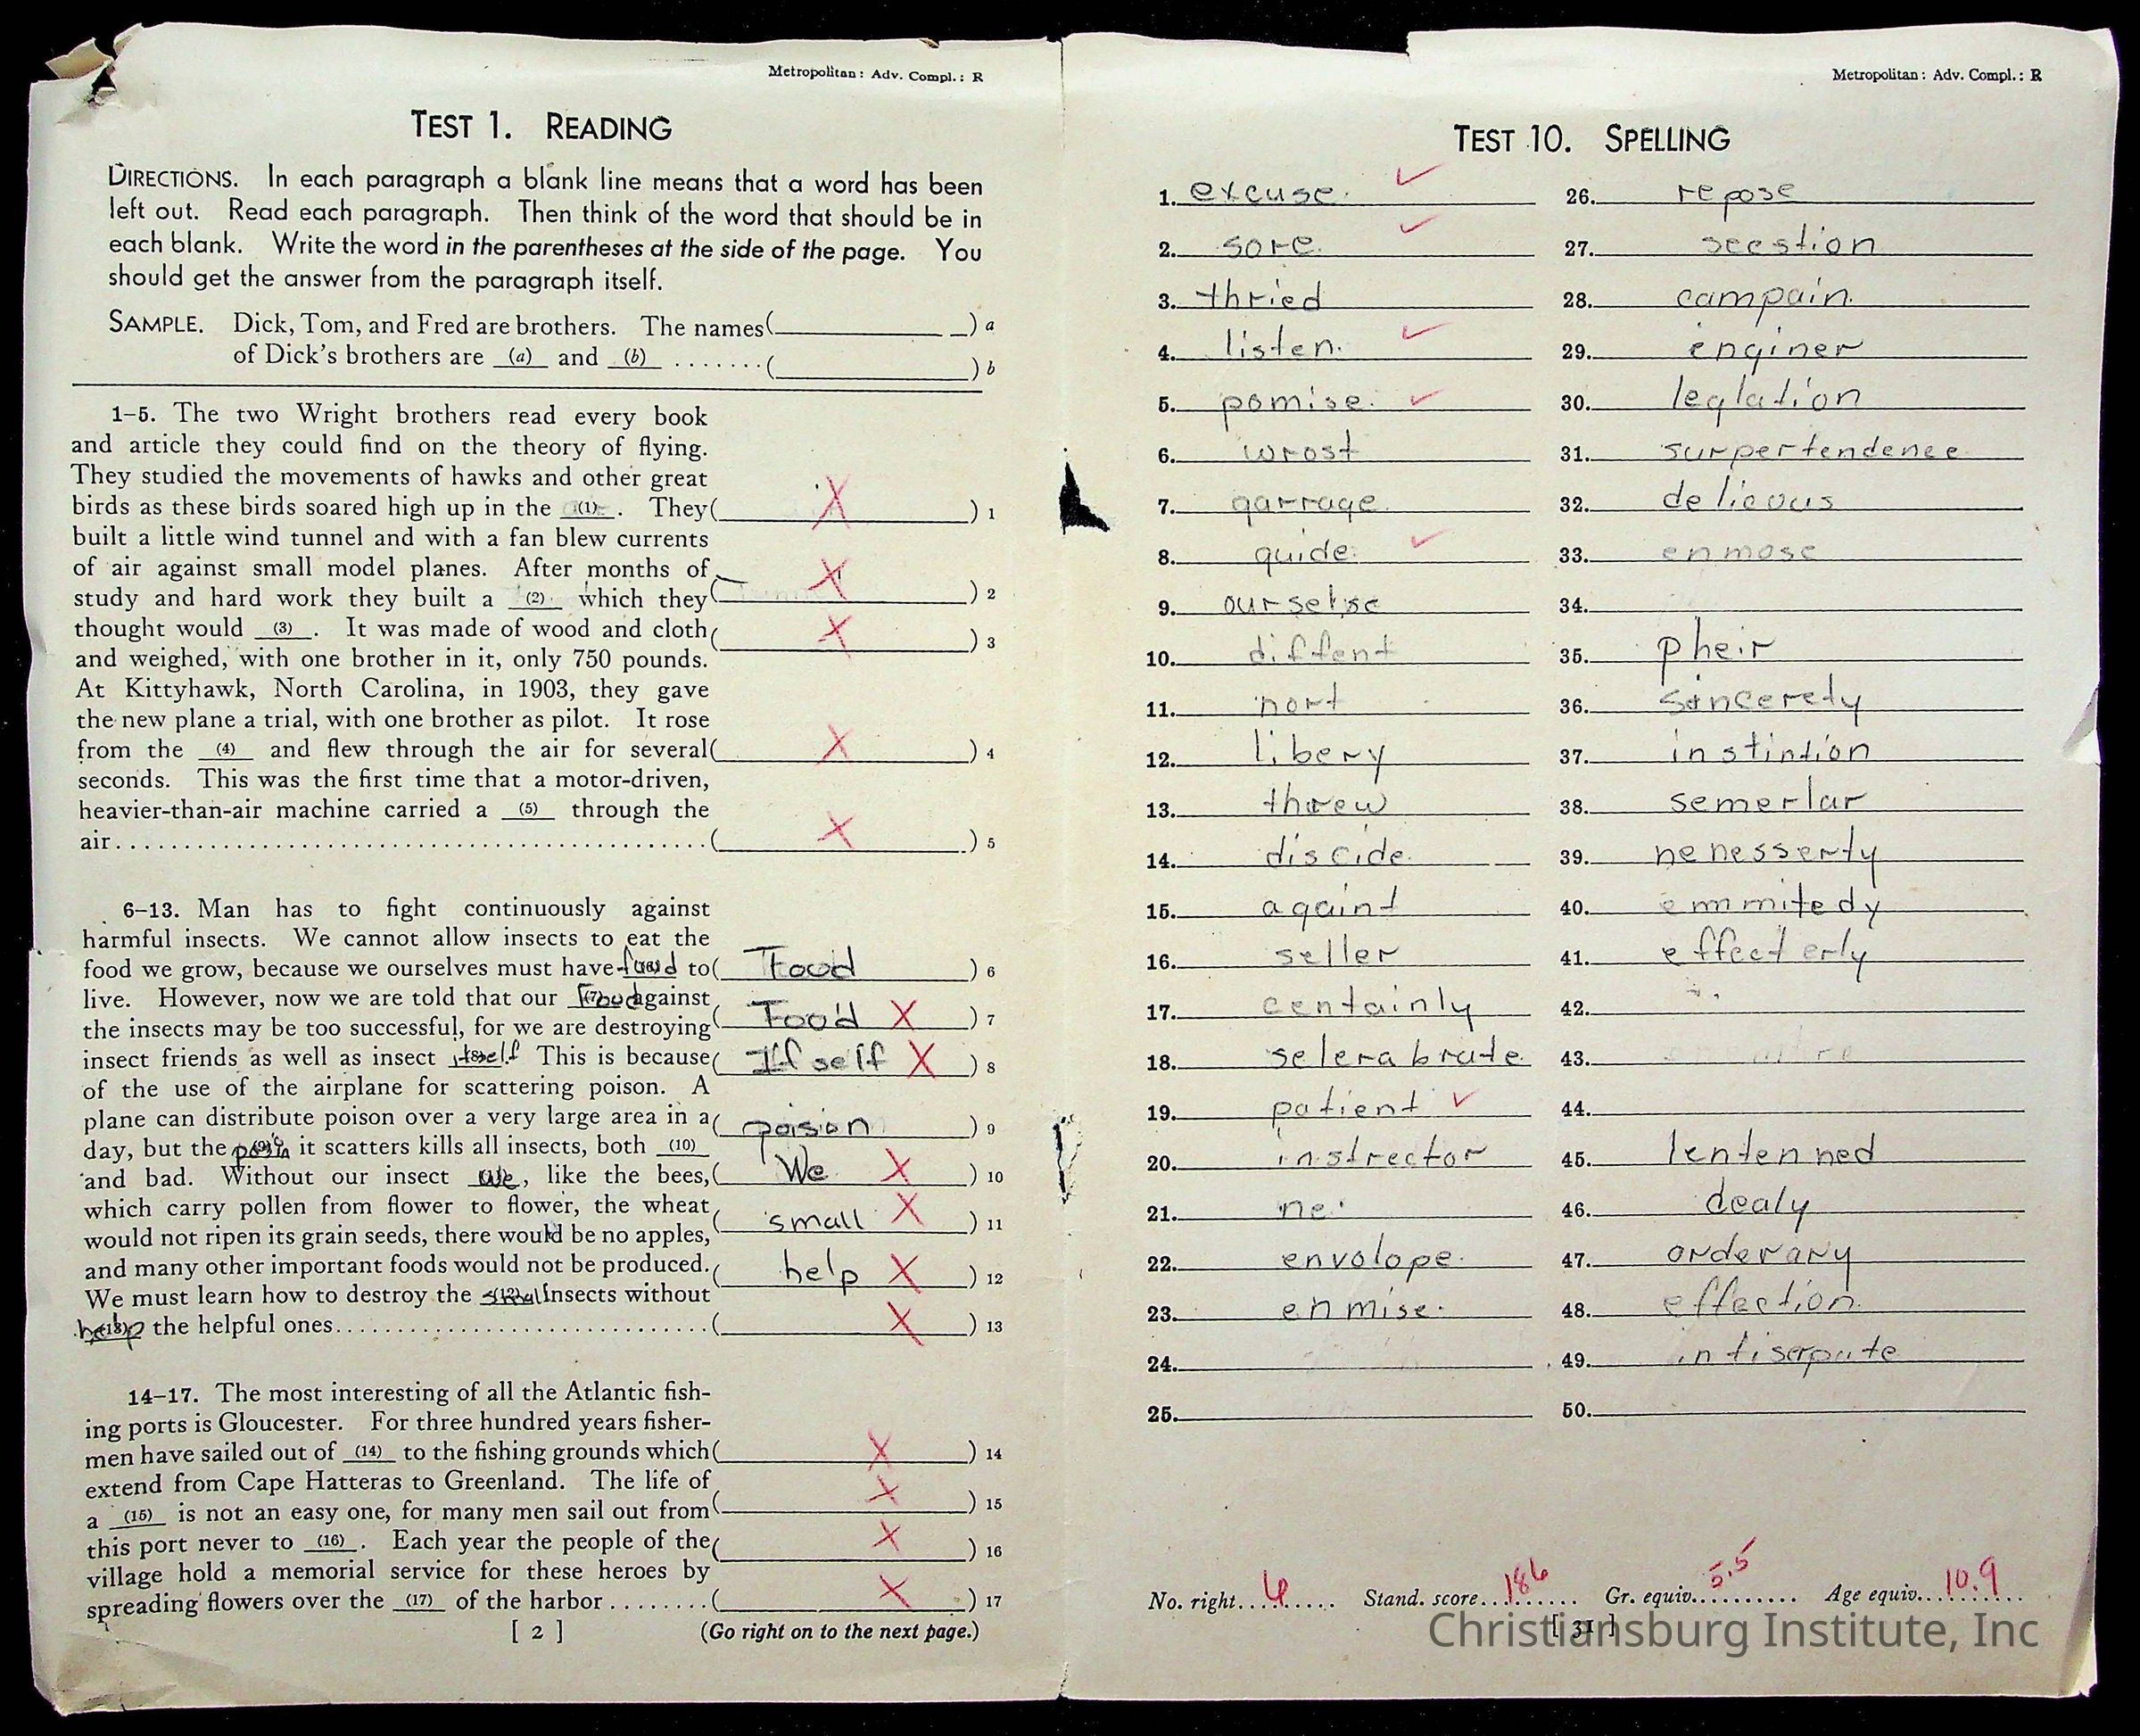 Metropolitan: Adv. Compl.: R
TEST 1. READING
DIRECTIONS. In each paragraph a blank line means that a word has been
left out. Read each paragraph. Then think of the word that should be in
each blank. Write the word in the parentheses at the side of the page. You
should get the answer from the paragraph itself.
SAMPLE. Dick, Tom, and Fred are brothers. The names (____) a
of Dick's brothers are (a) and (b) ....... (____) b
1–5. The two Wright brothers read every book
and article they could find on the theory of flying.
They studied the movements of hawks and other great
birds as these birds soared high up in the (1). They (X) 1
built a little wind tunnel and with a fan blew currents
of air against small model planes. After months of
study and hard work they built a (2) which they (X) 2
thought would (3). It was made of wood and cloth (X) 3
and weighed, with one brother in it, only 750 pounds.
At Kittyhawk, North Carolina, in 1903, they gave
the new plane a trial, with one brother as pilot. It rose
from the (4) and flew through the air for several (X) 4
seconds. This was the first time that a motor-driven,
heavier-than-air machine carried a (5) through the
air (X) 5
6–13. Man has to fight continuously against
harmful insects. We cannot allow insects to eat the
food we grow, because we ourselves must have food to (Food) 6
live. However, now we are told that our Food against
the insects may be too successful, for we are destroying (Food X) 7
insect friends as well as insect itself. This is because (If self X) 8
of the use of the airplane for scattering poison. A
plane can distribute poison over a very large area in a (poision) 9
day, but the (9) it scatters kills all insects, both (10)
and bad. Without our insect We, like the bees, (We X) 10
which carry pollen from flower to flower, the wheat
would not ripen its grain seeds, there would be no apples, (small X) 11
and many other important foods would not be produced. (help X) 12
We must learn how to destroy the small insects without
help the helpful ones (X) 13
14–17. The most interesting of all the Atlantic fish-
ing ports is Gloucester. For three hundred years fisher-
men have sailed out of (14) to the fishing grounds which (X) 14
extend from Cape Hatteras to Greenland. The life of
a (15) is not an easy one, for many men sail out from (X) 15
this port never to (16). Each year the people of the (X) 16
village hold a memorial service for these heroes by
spreading flowers over the (17) of the harbor ........ (X) 17
[ 2 ] (Go right on to the next page.)
Metropolitan: Adv. Compl.: R
TEST 10. SPELLING
1. excuse
2. sore
3. thried
4. listen
5. pomise
6. wrost
7. garrage
8. guide
9. ourselse
10. diffent
11. nort
12. libery
13. threw
14. discide
15. againt
16. seller
17. centainly
18. selerabrate
19. patient
20. instrector
21. ne
22. envolope
23. enmise
24.
25.
26. repose
27. seestion
28. campain
29. enginer
30. leglation
31. surpertendence
32. delicous
33. enmose
34.
35. pheir
36. sincerely
37. instintion
38. semerlar
39. nenesserty
40. emmitedy
41. effecterly
42.
43.
44.
45. lentenned
46. dealy
47. orderary
48. effection
49. intiserpate
50.
No. right 6 Stand. score 186 Gr. equiv. 5.5 Age equiv. 10.9
[ 31 ]
Christiansburg Institute, Inc